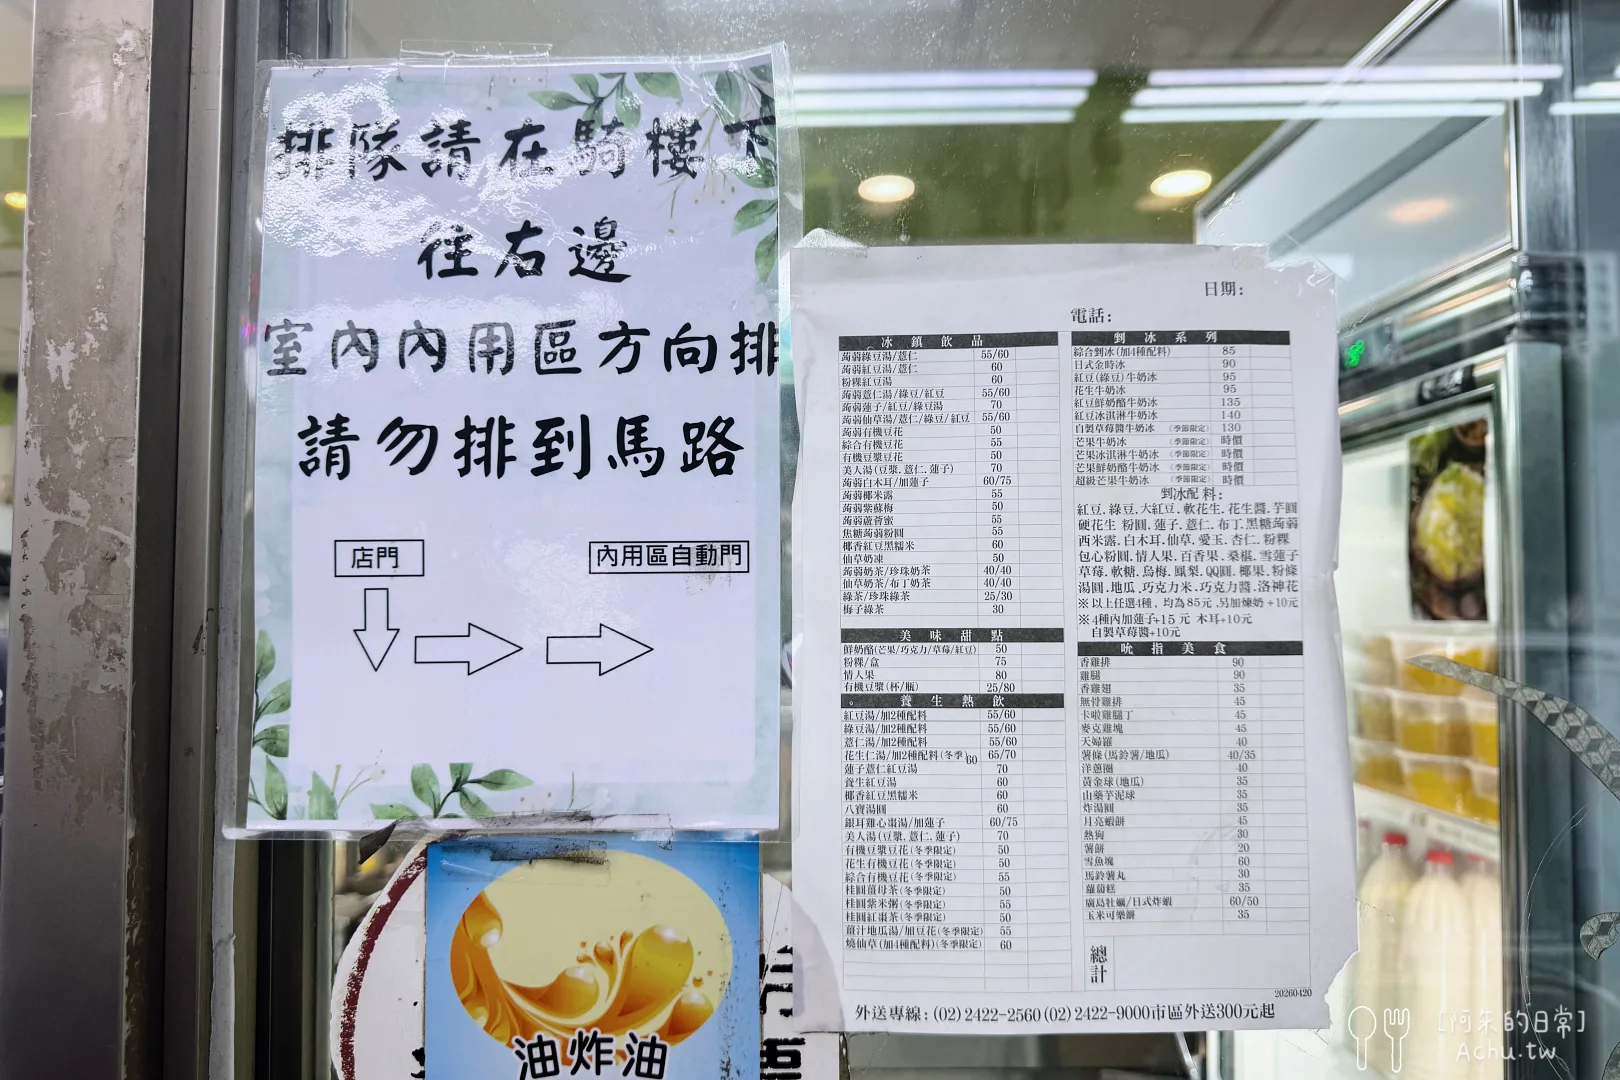 排隊請在騎樓下
往右邊
室內內用區方向排
請勿排到馬路
店門
內用區自動門
油炸油
日期：
電話：
冰鎮飲品
蒟蒻綠豆湯/薏仁 55/60
蒟蒻紅豆湯/薏仁 60
粉粿紅豆湯 60
蒟蒻薏仁湯/綠豆/紅豆 55/60
蒟蒻蓮子/紅豆/綠豆湯 70
蒟蒻仙草湯/薏仁/綠豆/紅豆 55/60
蒟蒻有機豆花 50
綜合有機豆花 55
有機豆漿豆花 50
美人湯(豆漿.薏仁.蓮子) 70
蒟蒻白木耳/加蓮子 60/75
蒟蒻椰米露 55
蒟蒻紫蘇梅 50
蒟蒻蘆薈蜜 55
焦糖蒟蒻粉圓 55
椰香紅豆黑糯米 60
仙草奶凍 50
蒟蒻奶茶/珍珠奶茶 40/40
仙草奶茶/布丁奶茶 40/40
綠茶/珍珠綠茶 25/30
梅子綠茶 30
美味甜點
鮮奶酪(芒果/巧克力/草莓/紅豆) 50
粉粿/盒 75
情人果 80
有機豆漿(杯/瓶) 25/80
養生熱飲
紅豆湯/加2種配料 55/60
綠豆湯/加2種配料 55/60
薏仁湯/加2種配料 55/60
花生仁湯/加2種配料(冬季) 60 65/70
蓮子薏仁紅豆湯 70
養生紅豆湯 60
椰香紅豆黑糯米 60
八寶湯圓 60
銀耳雞心棗湯/加蓮子 60/75
美人湯(豆漿.薏仁.蓮子) 70
有機豆漿豆花(冬季限定) 50
花生有機豆花(冬季限定) 50
綜合有機豆花(冬季限定) 55
桂圓薑母茶(冬季限定) 50
桂圓紫米粥(冬季限定) 55
桂圓紅棗茶(冬季限定) 50
薑汁地瓜湯/加豆花(冬季限定) 55
燒仙草(加4種配料)(冬季限定) 60
剉冰系列
綜合剉冰(加4種配料) 85
日式金時冰 90
紅豆(綠豆)牛奶冰 95
花生牛奶冰 95
紅豆鮮奶酪牛奶冰 135
紅豆冰淇淋牛奶冰 140
自製草莓醬牛奶冰 (季節限定) 130
芒果牛奶冰 (季節限定) 時價
芒果冰淇淋牛奶冰 (季節限定) 時價
芒果鮮奶酪牛奶冰 (季節限定) 時價
超級芒果牛奶冰 (季節限定) 時價
剉冰配料：
紅豆.綠豆.大紅豆.軟花生.花生醬.芋圓
硬花生 粉圓.蓮子.薏仁.布丁.黑糖蒟蒻
西米露.白木耳.仙草.愛玉.杏仁.粉粿
包心粉圓.情人果.百香果.桑椹.雪蓮子
草莓.軟糖.烏梅.鳳梨.QQ圓.椰果.粉條
湯圓.地瓜.巧克力米.巧克力醬.洛神花
※以上任選4種，均為85元.另加煉奶+10元
※4種內加蓮子+15元 木耳+10元
自製草莓醬+10元
吮指美食
香雞排 90
雞腿 90
香雞翅 35
無骨雞排 45
卡啦雞腿丁 45
麥克雞塊 45
天婦羅 40
薯條(馬鈴薯/地瓜) 40/35
洋蔥圈 40
黃金球(地瓜) 35
山藥芋泥球 35
炸湯圓 35
月亮蝦餅 45
熱狗 30
薯餅 20
雪魚塊 60
馬鈴薯丸 30
蘿蔔糕 35
廣島牡蠣/日式炸蝦 60/50
玉米可樂餅 35
總計
20260420
外送專線：(02)2422-2560 (02)2422-9000市區外送300元起
[阿朱的日常]
Achu.tw